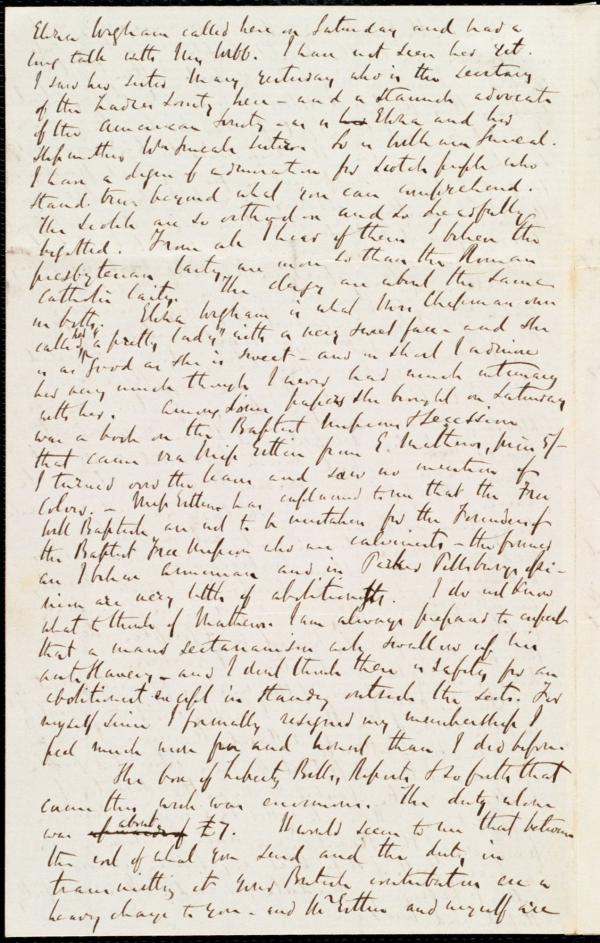 Eliza Wigham called here on Saturday and had a
long talk with Mr Webb. I have not seen her yet.
I saw her sister Mary yesterday who is the secretary
of the Ladies Society here - and a staunch advocate
of the American Society - as is her Eliza and her
stepmother. So is William Smeal.
I have a degree of admiration for Scotch people who
stand true beyond what you can comprehend.
The Scotch are so orthodox and so dreadfully
bigotted. From all I hear of them I believe the
presbyterian laity are more so than the Roman
Catholic laity. The clergy are about the same
in both. Eliza Wigham is what Mrs Chapman once
called "a pretty lady" with a very sweet face - and she
is as good as she is sweet - and in short I admire
her very much though I never had much intimacy
with her. Among some papers she brought on Saturday
was a book on the Baptist Missions & Secession
that came via Miss Estlin from E. Mathews, price 5/-
I turned over the leaves and saw no mention of
color. - Miss Estlin has explained to me that the Free
Will Baptists are not to be mistaken for the Founders of
the Baptist Free Mission who are calvinists - the former
are I believe arminian and in Parker Pillsbury's opi-
nion are very little of abolitionists. I do not know
what to think of Mathews. I am always prepared to expect
that a mans sectarianism will swallow up his
anti slavery - and I dont think there is safety for an
abolitionist except in standing outside the sects. For
myself since I formally resigned my membership I
feel much more free and honest than I did before
The box of Liberty Bells, Reports & so forth that
came this week was enormous. The duty alone
was about £7. It would seem to me that between
the cost of what you send and the duty, in
transmitting it your British contributors are a
heavy charge to you - and Mr Estlin and myself are